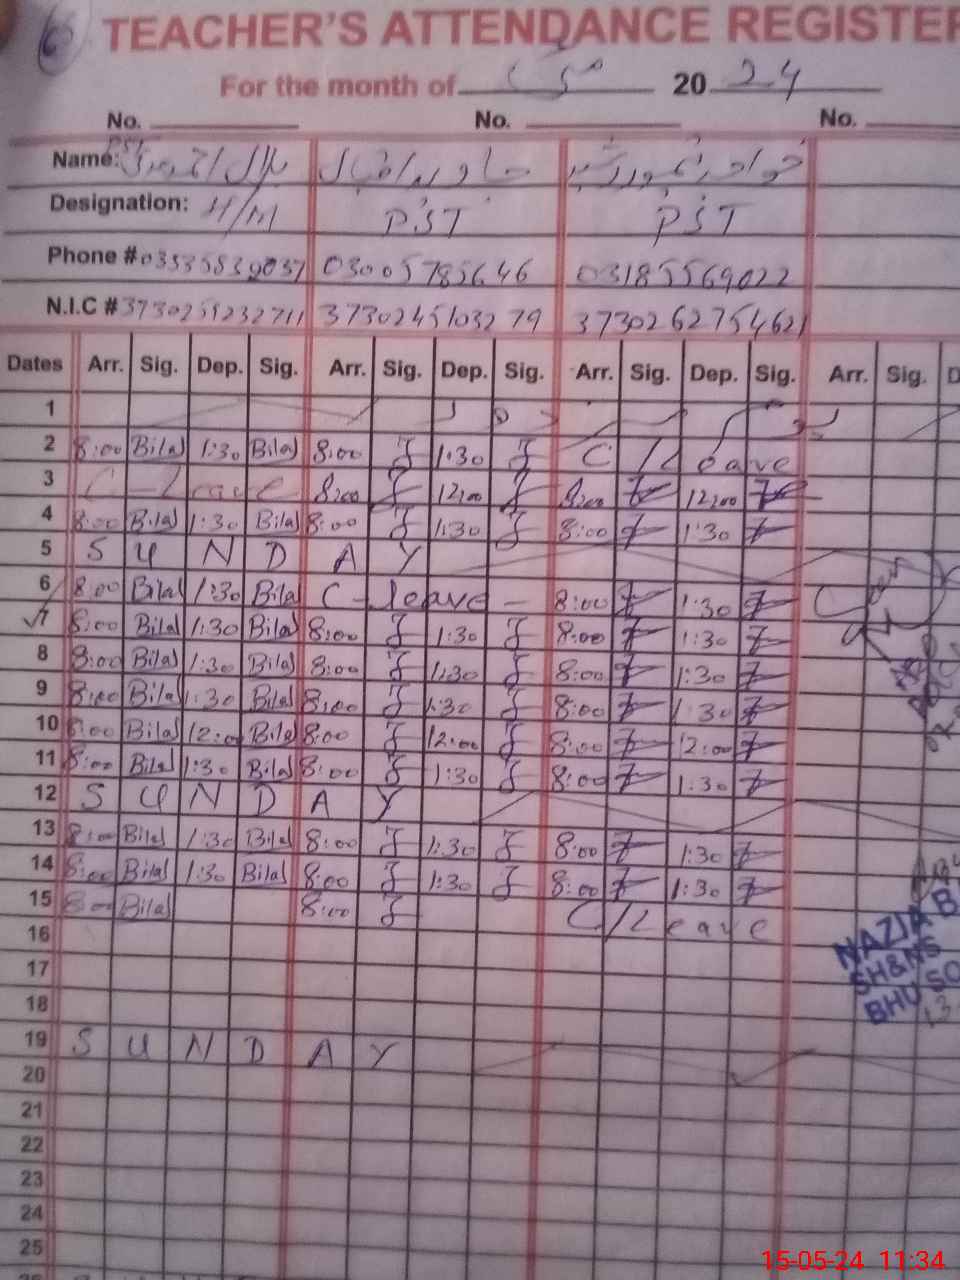 6
TEACHER'S ATTENDANCE REGISTER
For the month of مئی 2024
No. No. No.
Name: بلال احمد
Designation: H/M PST PST
Phone # 03535839037 03005785646 03185569022
N.I.C # 3730259232711 3730245103279 3730262754621
Dates Arr. Sig. Dep. Sig. Arr. Sig. Dep. Sig. Arr. Sig. Dep. Sig. Arr. Sig. D
1
2 8:00 Bilal 1:30 Bilal 8:00 1:30 C/Leave
3 C Leave 8:00 12:00 8:00 12:00
4 8:00 Bilal 1:30 Bilal 8:00 1:30 8:00 1:30
5 S U N D A Y
6 8:00 Bilal 1:30 Bilal C-leave- 8:00 1:30
7 8:00 Bilal 1:30 Bilal 8:00 1:30 8:00 1:30
8 8:00 Bilal 1:30 Bilal 8:00 1:30 8:00 1:30
9 8:00 Bilal 1:30 Bilal 8:00 1:30 8:00 1:30
10 8:00 Bilal 12:00 Bilal 8:00 12:00 8:00 12:00
11 8:00 Bilal 1:30 Bilal 8:00 1:30 8:00 1:30
12 S U N D A Y
13 8:00 Bilal 1:30 Bilal 8:00 1:30 8:00 1:30
14 8:00 Bilal 1:30 Bilal 8:00 1:30 8:00 1:30
15 8:00 Bilal 8:00 C/Leave
16
17
18
19 S U N D A Y
20
21
22
23
24
25
NAZIA B
SH&NS
BHU SO
15-05-24 11:34